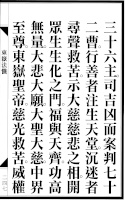 三十六主司吉凶而案判七十
二曹行善者注生天堂沉迷者
尋聲救苦示大慈慈悲之相開
眾生生化之門福與天齊功高
無量大悲大願大聖大慈中界
至尊東嶽聖帝慈光救苦威權
東嶽法懺